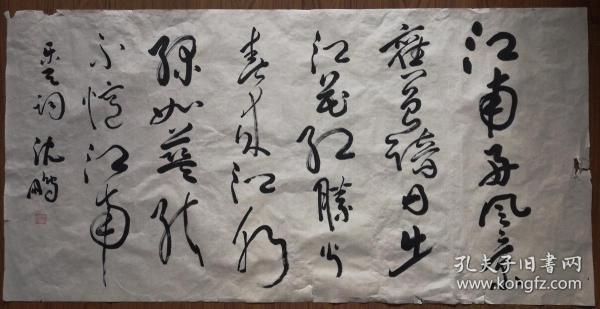 江南好风景
旧曾谙日出
江花红胜火
春来江水
绿如蓝能
不忆江南
乐天词 沈鹏
孔夫子旧书网
www.kongfz.com